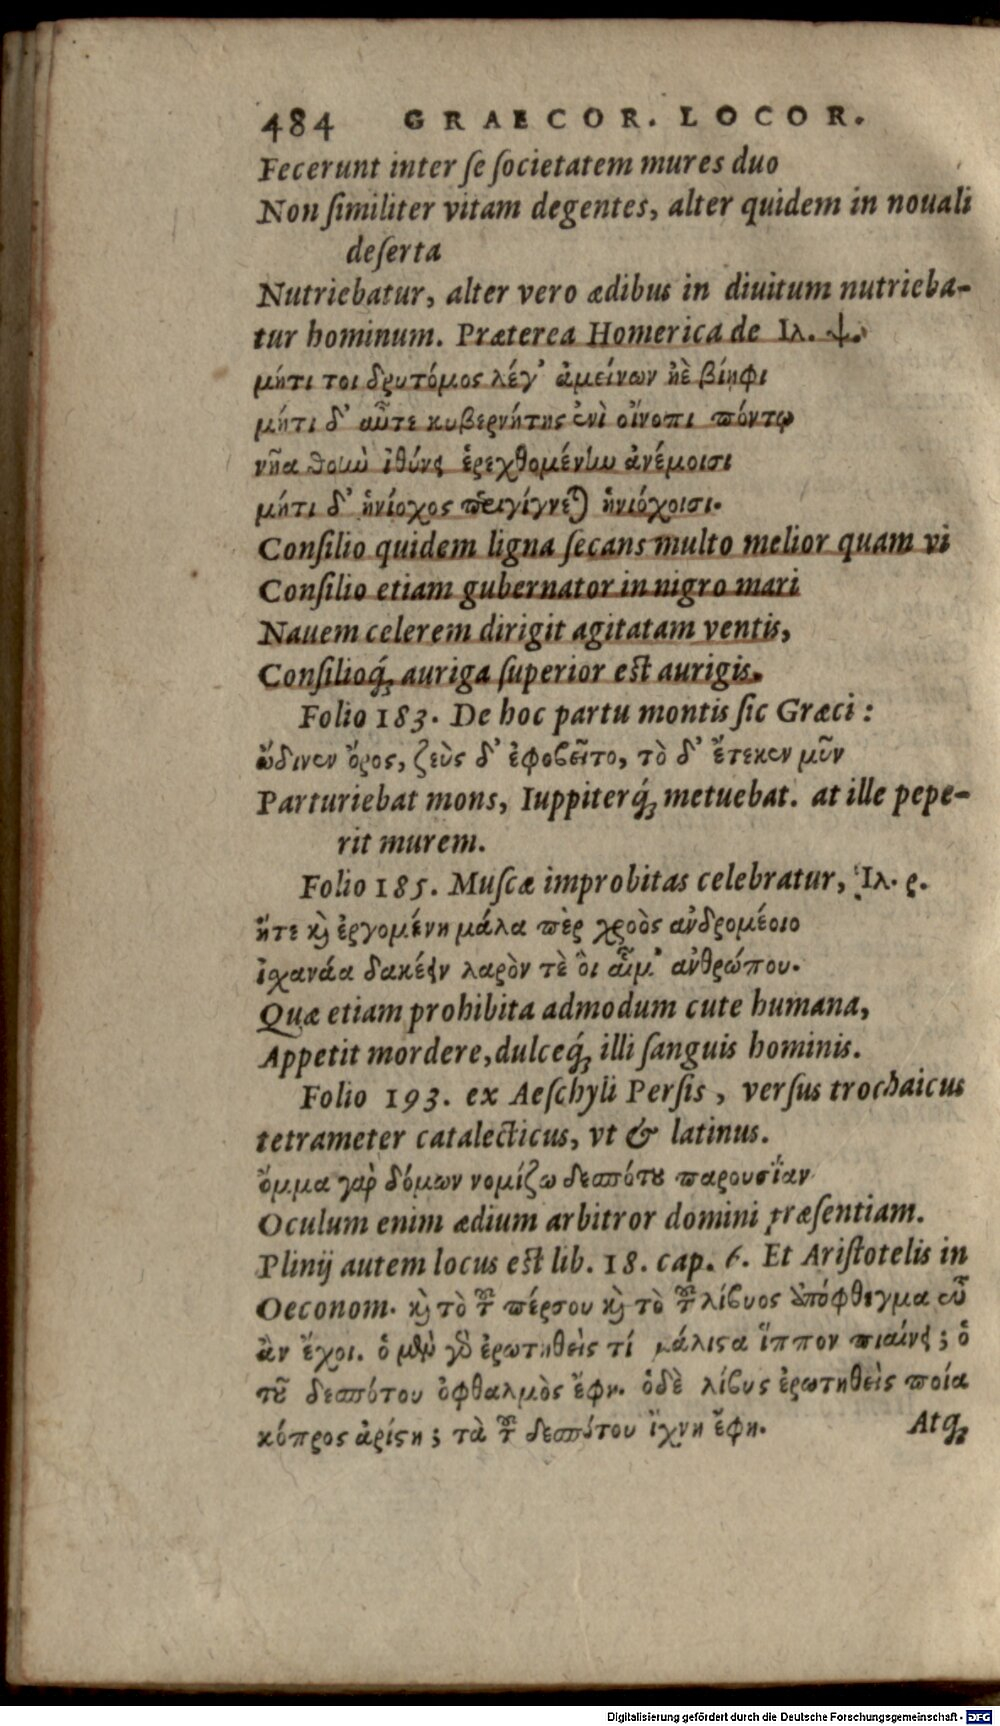 484 GRAECOR. LOCOR.
Fecerunt inter ſe ſocietatem mures duo
Non ſimiliter vitam degentes, alter quidem in nouali
deſerta
Nutriebatur, alter vero ædibus in diuitum nutrieba-
tur hominum. Præterea Homerica de Ιλ. ψ.
μήτι τοι δρυτόμος λέγ' ἀμείνων ἠὲ βίηφι
μήτι δ' αὖτε κυβερνήτης ἐνὶ οἴνοπι πόντῳ
νῆα θοὴν ἰθύνει ἐρεχθομένην ἀνέμοισι
μήτι δ' ἡνίοχος περιγίγνεται ἡνιόχοισι.
Conſilio quidem ligna ſecans multo melior quam vi
Conſilio etiam gubernator in nigro mari
Nauem celerem dirigit agitatam ventis,
Conſilioq́ꝫ auriga ſuperior est aurigis.
Folio 183. De hoc partu montis ſic Græci:
ὤδινεν ὄρος, ζεὺς δ' ἐφοβεῖτο, τὸ δ' ἔτεκεν μῦν
Parturiebat mons, Iuppiterq́ꝫ metuebat. at ille pepe-
rit murem.
Folio 185. Muſcæ improbitas celebratur, Ιλ. ρ.
ἥτε καὶ ἐργομένη μάλα πὲρ χροὸς ἀνδρομέοιο
ἰχανάα δακέειν λαρὸν τὲ ὃι αἷμ' ἀνθρώπου.
Quæ etiam prohibita admodum cute humana,
Appetit mordere, dulceq́ꝫ illi ſanguis hominis.
Folio 193. ex Aeſchyli Perſis, verſus trochaicus
tetrameter catalecticus, vt & latinus.
ὄμμα γὰρ δόμων νομίζω δεσπότου παρουσίαν
Oculum enim ædium arbitror domini præſentiam.
Plinij autem locus est lib. 18. cap. 6. Et Ariſtotelis in
Oeconom. καὶ τὸ τοῦ πέρσου καὶ τὸ τοῦ λίβυος ἀπόφθεγμα εὖ
ἂν ἔχοι. ὁ μὲν γὰρ ἐρωτηθεὶς τί μάλιστα ἵππον πιαίνει; ὁ
τοῦ δεσπότου ὀφθαλμὸς ἔφη. ὁδὲ λίβυς ἐρωτηθεὶς ποία
κόπρος ἀρίστη; τὰ τοῦ δεσπότου ἴχνη ἔφη.
Atqꝫ
Digitalisierung gefördert durch die Deutsche Forschungsgemeinschaft - DFG